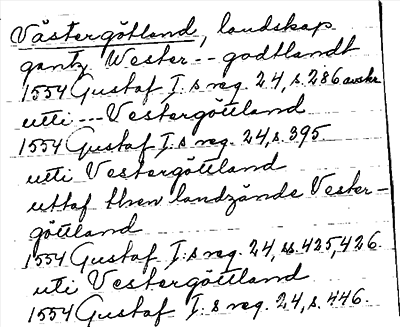 Västergötland, landskap.
gantz Wester -- godtlandt
1554 Gustaf I:s reg. 24, s. 286 avskr.
utti --- Vestergöttland
1554 Gustaf I:s reg. 24, s. 395.
utti Vestergöttland
uttaf then landzände Vester-
göttland
1554 Gustaf I:s reg. 24, ss. 425, 426.
uti Vestergöttland
1554 Gustaf I:s reg. 24, s. 446.